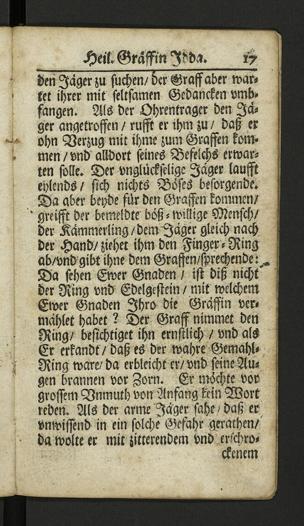 Heil. Gräffin Idda. 17
den Jäger zu suchen/ der Graff aber war-
tet ihrer mit seltsamen Gedancken vmb-
fangen. Als der Ohrentrager den Jä-
ger angetroffen/ rufft er ihm zu/ daß er
ohn Verzug mit ihme zum Graffen kom-
men/ vnd alldort seines Befelchs erwar-
ten solle. Der vnglückselige Jäger laufft
eylends/ sich nichts Böses besorgende.
Da aber beyde für den Graffen kommen/
greifft der bemeldte böß-willige Mensch/
der Kämmerling/ dem Jäger gleich nach
der Hand/ ziehet ihm den Finger-Ring
ab/ vnd gibt ihne dem Graffen/ sprechende:
Da sehen Ewer Gnaden/ ist diß nicht
der Ring vnd Edelgestein/ mit welchem
Ewer Gnaden Ihro die Gräffin ver-
mählet habet? Der Graff nimmet den
Ring/ besichtiget ihn ernstlich/ vnd als
Er erkandt/ daß es der wahre Gemahl-
Ring ware/ da erbleicht er/ vnd seine Au-
gen brannen vor Zorn. Er möchte vor
grossem Vnmuth von Anfang kein Wort
reden. Als der arme Jäger sahe/ daß er
vnwissend in ein solche Gefahr gerathen/
da wolte er mit zitterendem vnd erschro-
ckenem